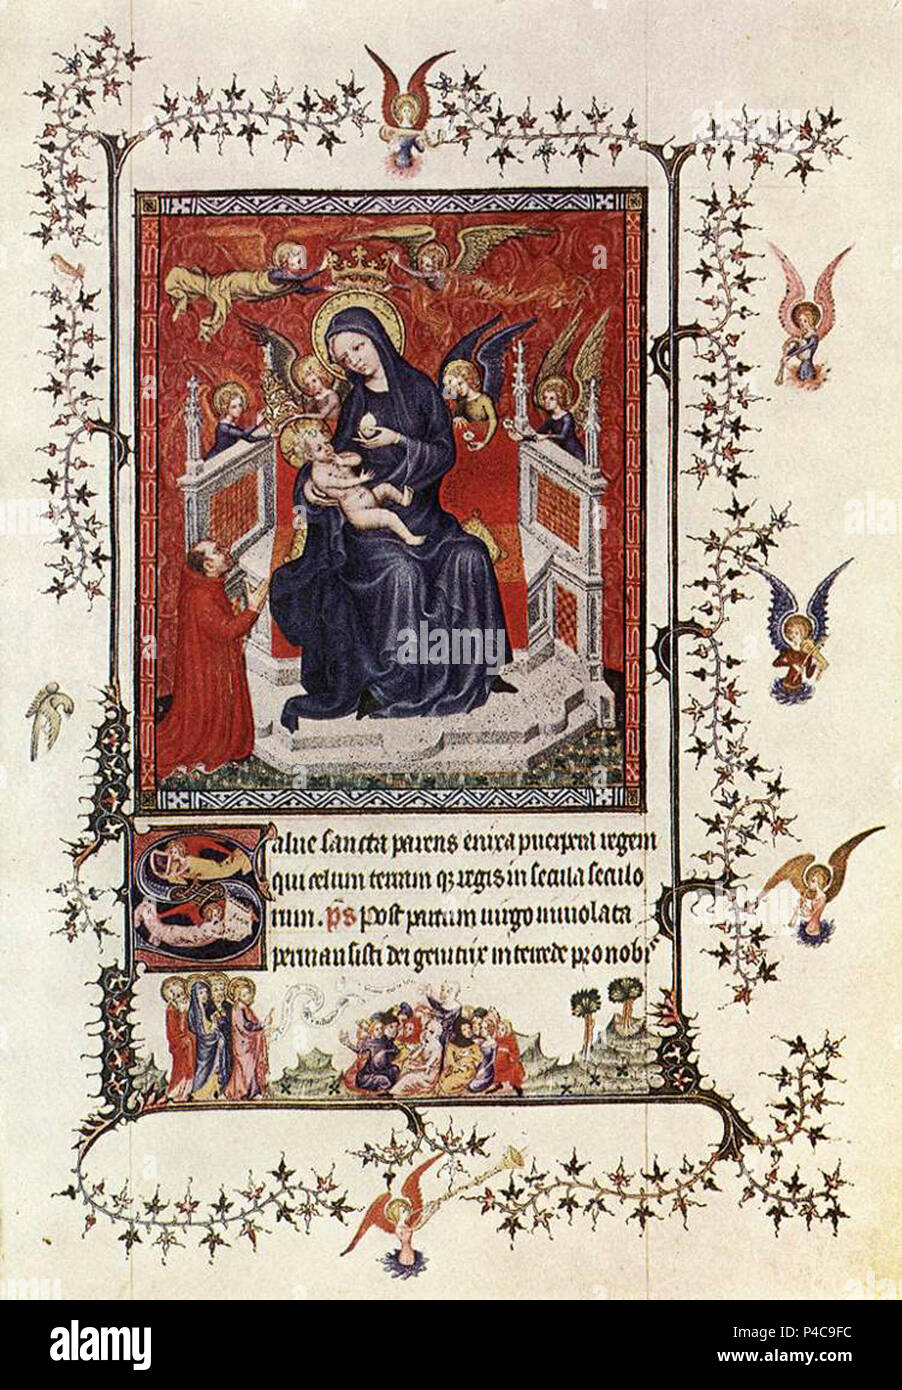 Salue sancta parens enixa puerpera regem
qui celum terram q3 regis in secula seculo
rum. ps Post partum uirgo inuiolata
permansisti dei genitrix intercede pro nobis
alamy
Image ID: P4C9FC
www.alamy.com